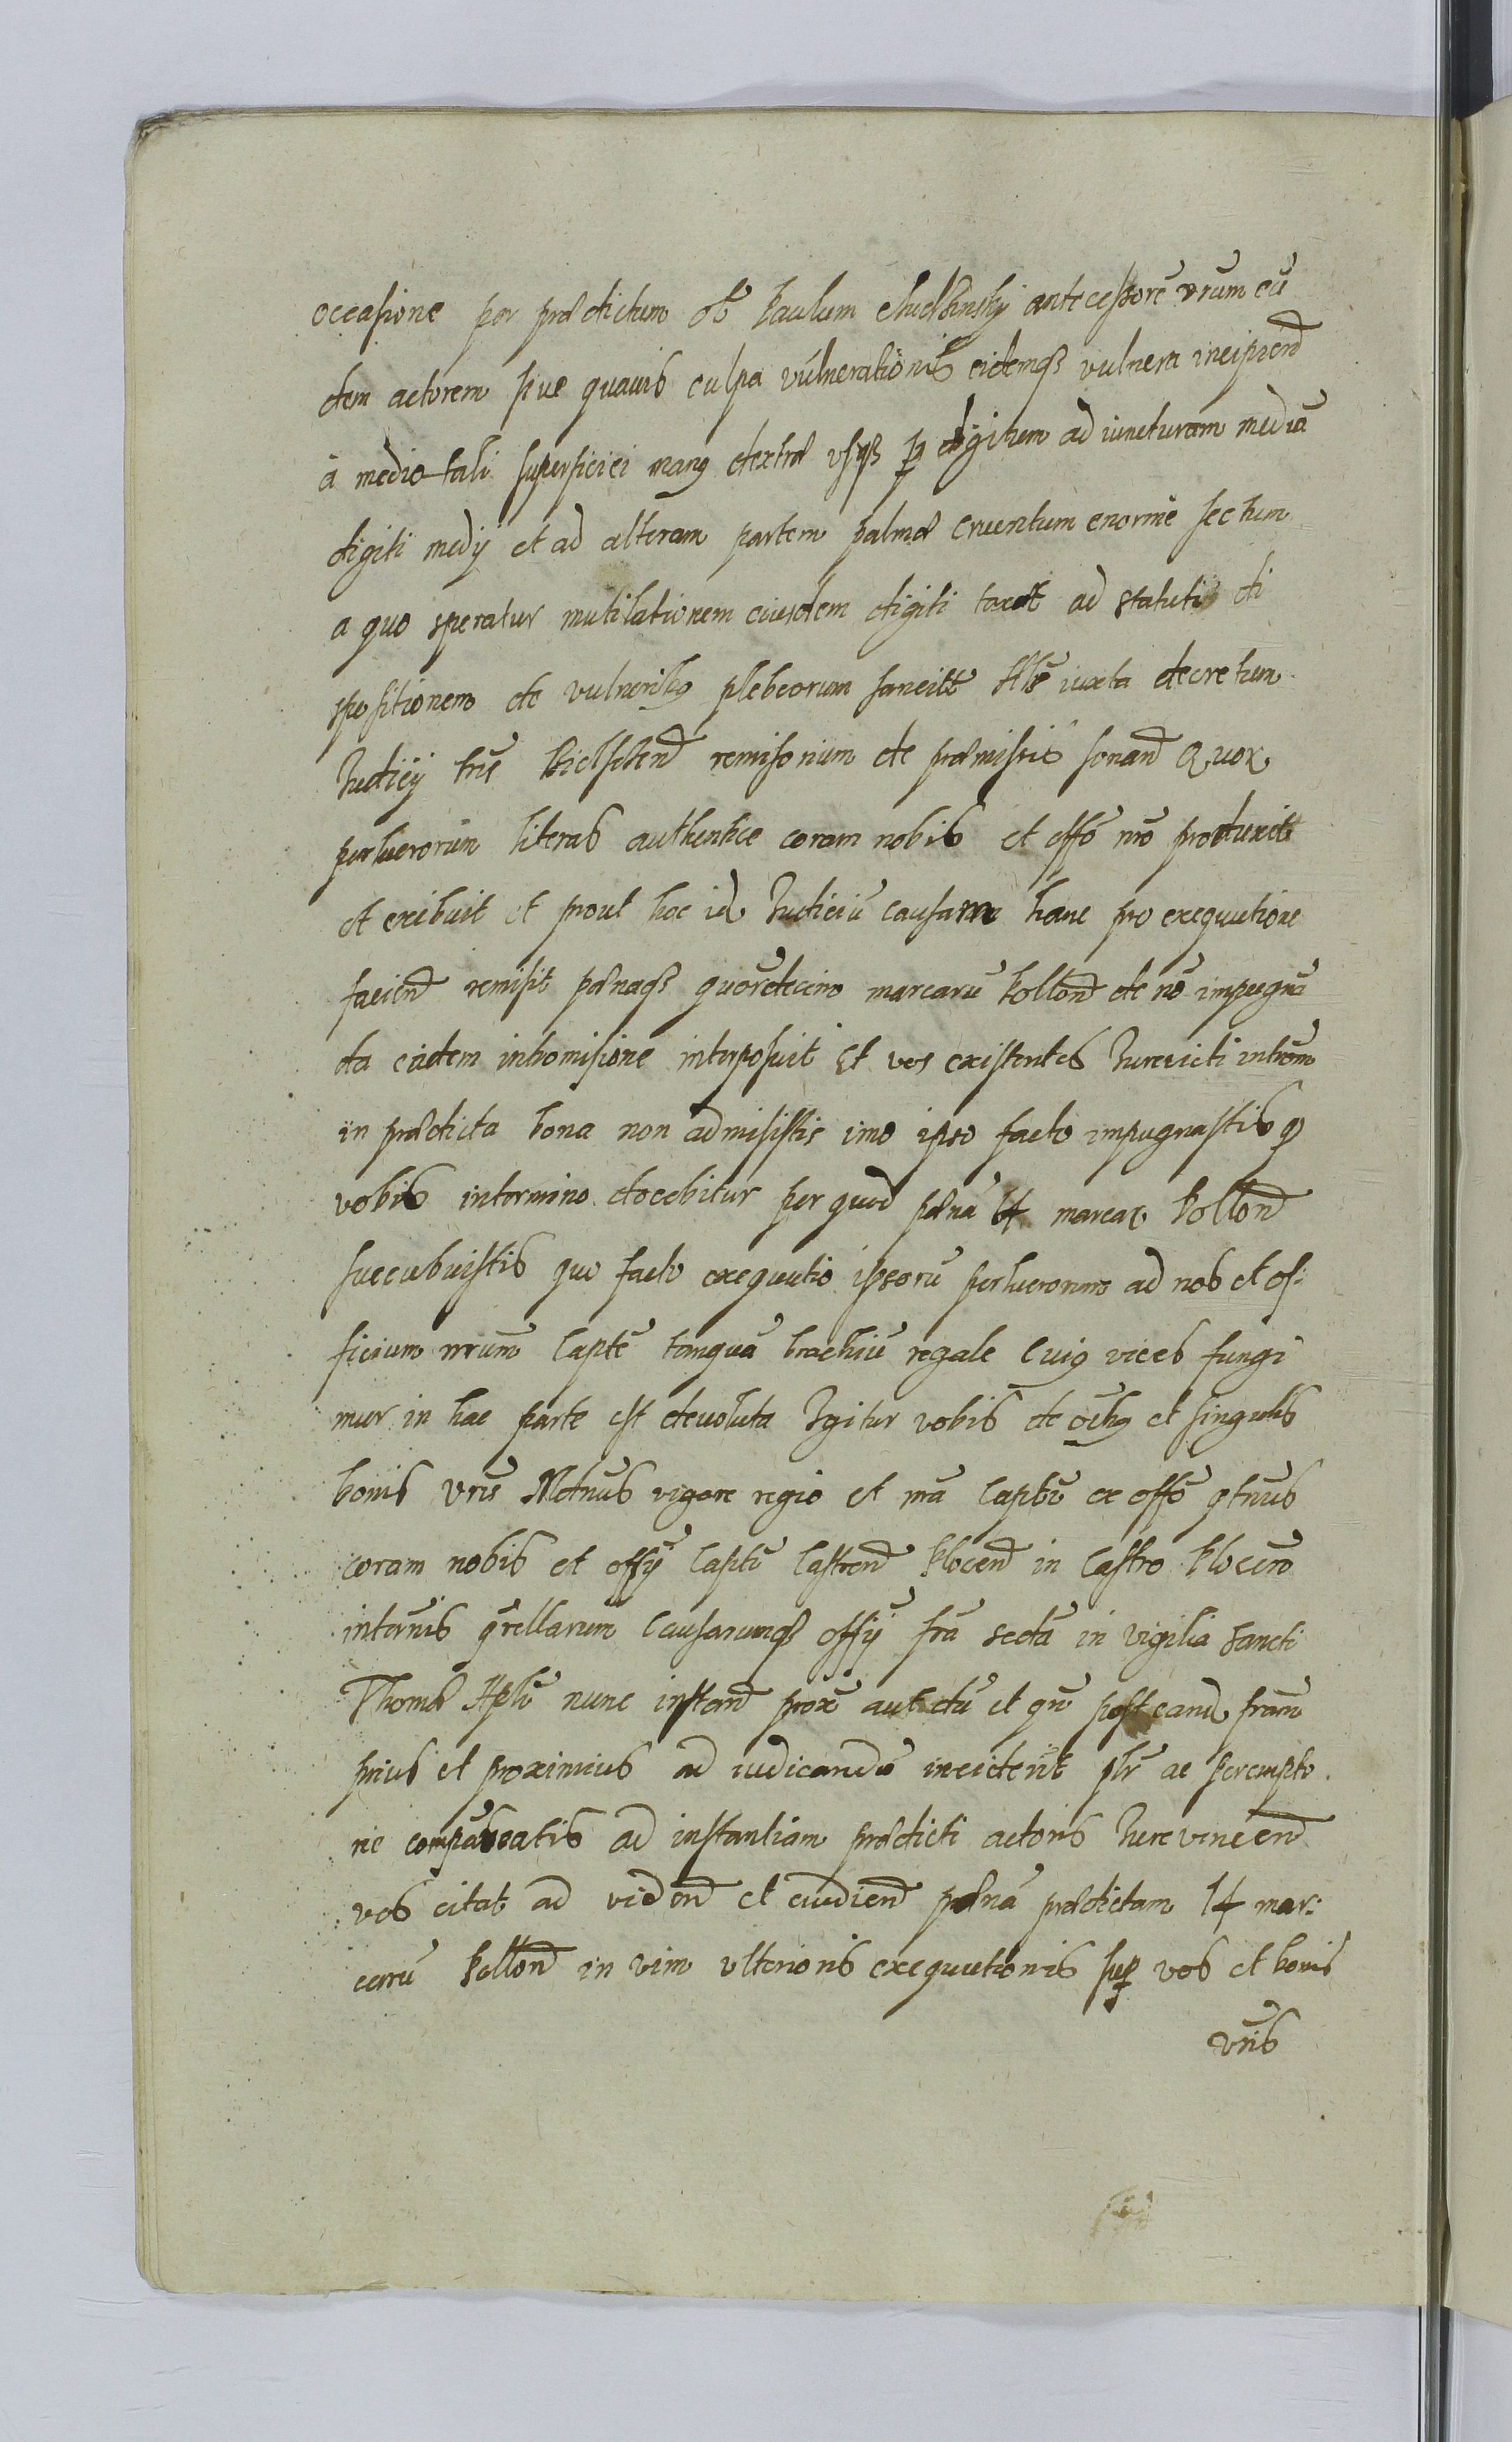 occasione per prædictum ol̃ Paulum Chudzinskÿ antecessorẽ vr̃um eũ
dem actorem siue quauis culpa vulnerationis eidemqȝ vulnera incipiend
à medietati superficiei manꝰ dextræ vsqȝ ꝑ digitum ad iuncturam mediã
digiti medÿ et ad alteram partem palmæ cruentum enormẽ sectum
a quo speratur mutilationem eiusdem digiti taxat ad statuti di
spositionem de vulneribꝰ plebeorum sancitt iuxta decretum
Iudicÿ tr̃is Bielscen remisorium de præmissis sonand Quor
perlucrorum literas authentice coram nobis et offõ nr̃o produxit
et exibuit et prout hoc id Iudiciũ causam hanc pro exequutione
faciend remisit pœnaqȝ quõrdecim marcarũ Pollon de nõ impugnã
da eadem intromisione interposuit Et vos existentes Iurevicti intrõm
in prædicta bona non admisistis imo ipso facto impugnastis
vobis intermino docebitur per quod pœnã 14 marcar Pollon
succubuistis quo facto exequutio ipsorũ perlucrorum ad nos et of:
ficium nr̃um Captẽ tanquã brachiũ regale Cuiꝰ vices fungi
mur in hac parte est devoluta Igitur vobis de oĩbꝰ et singulis
bonis vr̃is Mdmũs vigore regio et nr̃a Captũ ex offõ qtnũs
coram nobis et offÿ Captũ Castren Plocen in Castro Plocen
intermis qrellarum Causarumqȝ offÿ fr̃a secda in vigilia Sancti
Thomæ Apli nunc instan prox̃ aut dũ et qñ post eand fr̃am
prius et proximius ad iudicandũ inciderit plr̃ ac perempto
rie compareatis ad instantiam prædicti actoris Iurevincen
vos citat ad viden et audiend pœnã prædictam 14 mar:
carũ Pollon in vim vlterioris exequutionis suꝑ vos et bonis
vr̃is